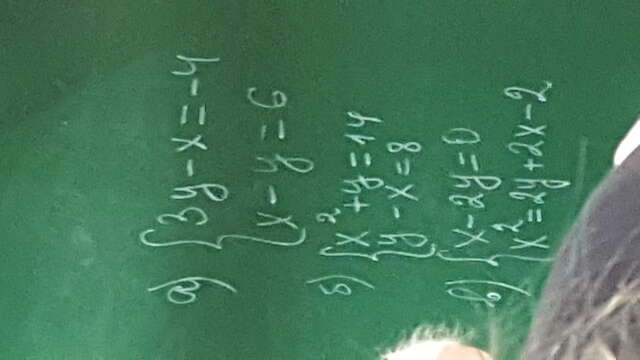 а) {3y-x=-4
{x-y=6
б) {x²+y=14
{y-x=8
в) {x-2y=0
{x²=2y+2x-2